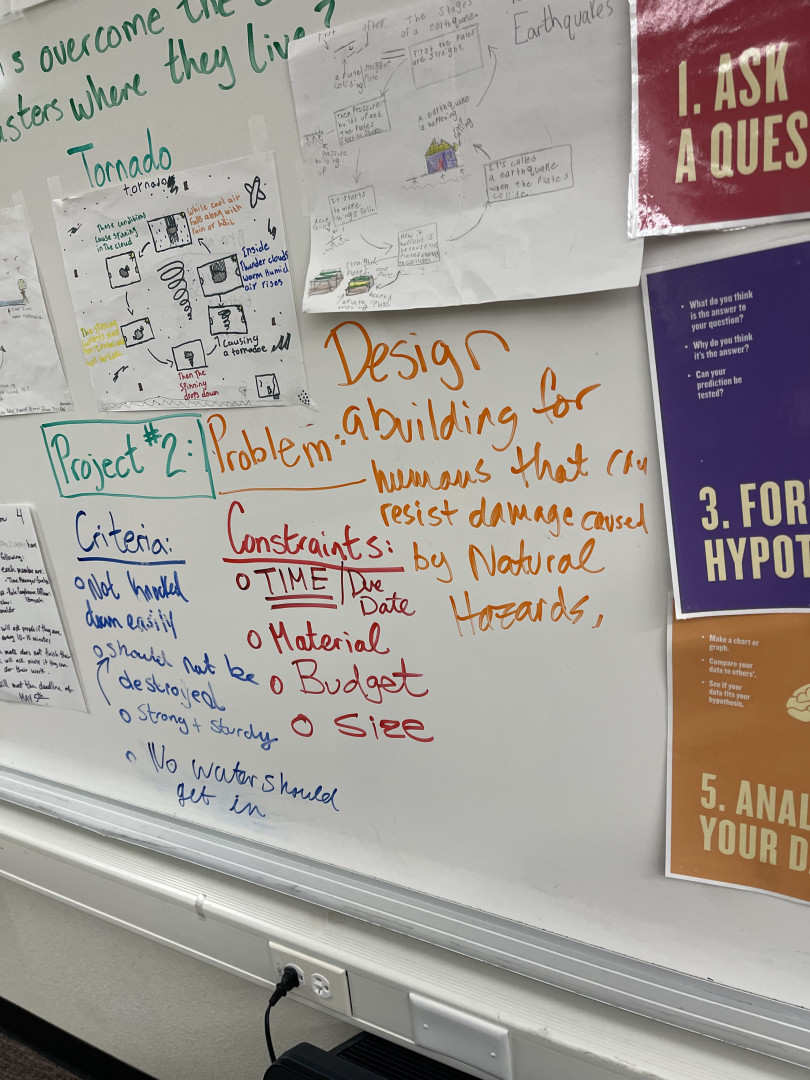 s overcome the
sters where they live?
Tornado
tornado
These conditions
cause spinning
in the cloud
While cool air
falls along with
rain or hail
Inside
thunder clouds
warm humid
air rises
Causing
a tornadoe
Then the
spinning
drops down
The Stages
of a earthquake.
Earthquakes
after
First the Plates
are straight.
Then Pressure
builds up and
the Plates
Pressure
building
up
A earthquake
is happening
It's called
a earthquake
when the Plates
collide.
It starts
to make
things fall.
How it
happens is
because the
Plates
1. ASK
A QUES
• What do you think
is the answer to
your question?
• Why do you think
it's the answer?
• Can your
prediction be
tested?
3. FOR
HYPOT
• Make a chart or
graph.
• Compare your
data to others'.
• See if your
data fits your
hypothesis.
5. ANAL
YOUR D
Project #2:
Problem: Design
a building for
humans that can
resist damage caused
by Natural
Hazards.
Criteria:
○ Not knocked
down easily
○ should not be
destroyed
○ Strong + Sturdy
○ No water should
get in
Constraints:
○ TIME / Due
Date
○ Material
○ Budget
○ Size
4
have
following:
each member are